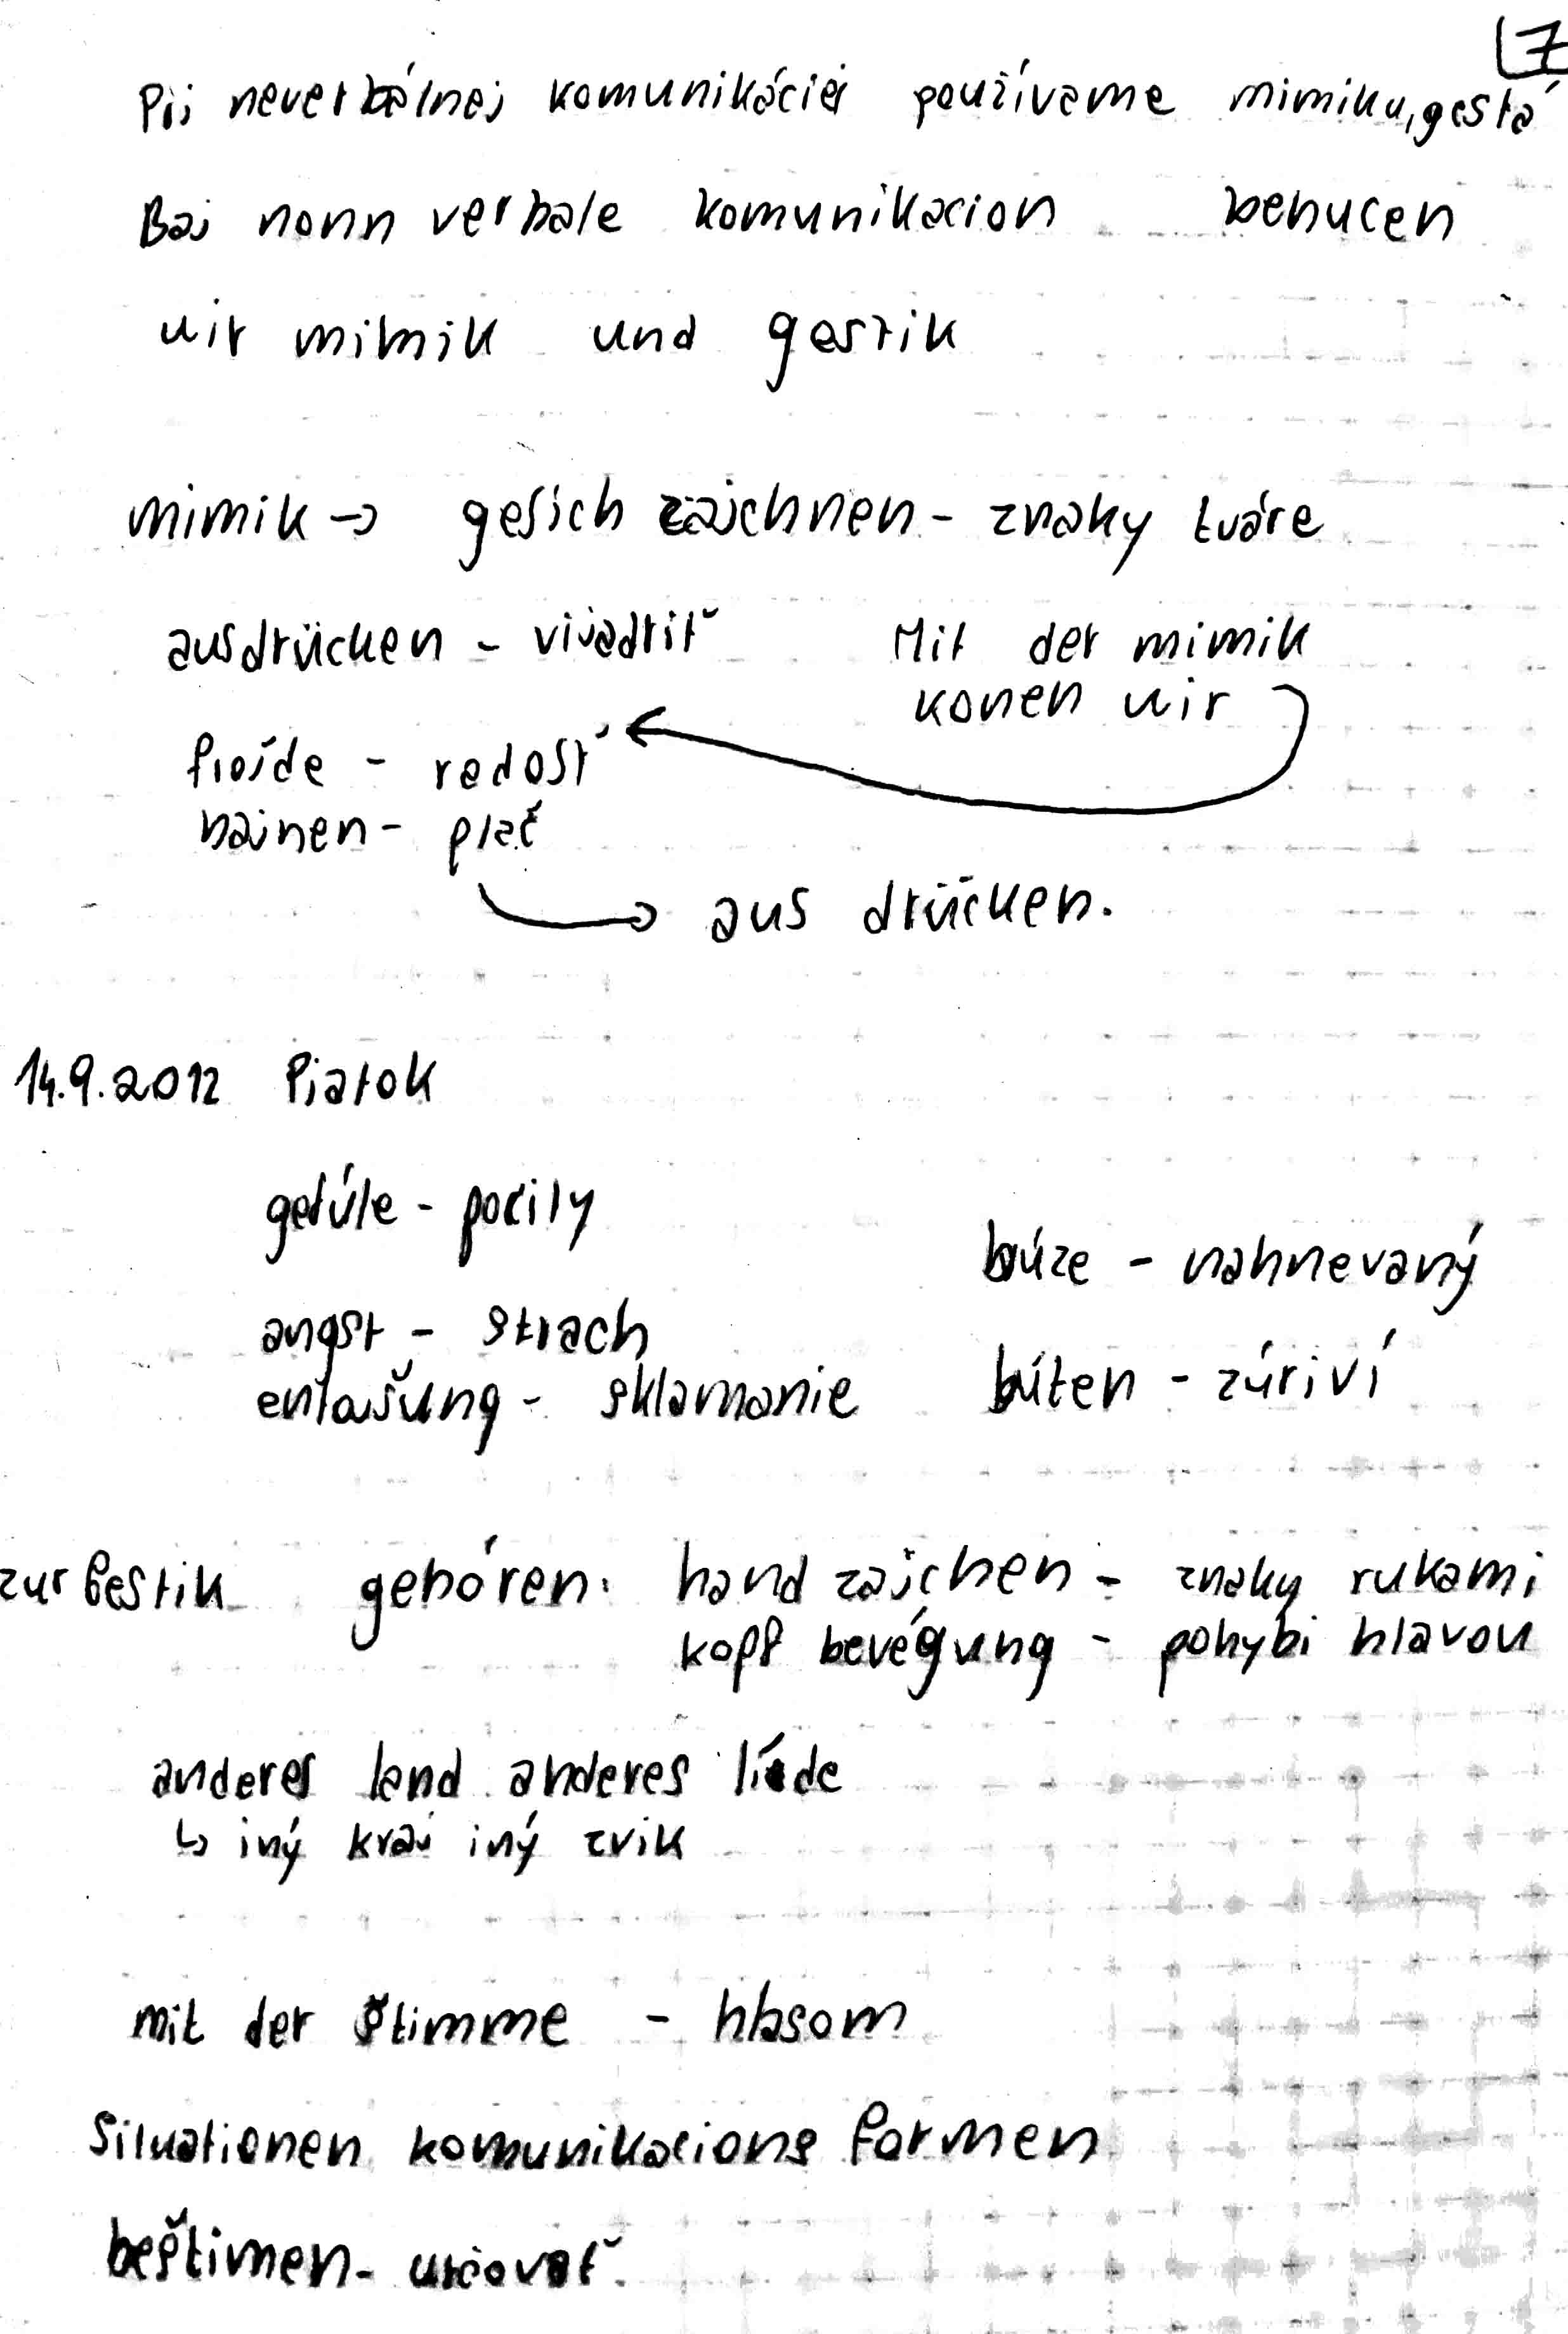 7
Pij neverbálnej komunikáciei používame mimiku, gestá
Baj nonn verbale komunikacion benucen
uir mimik und gestik
mimik → gesich zajchnen - znaky tváre
ausdrücken - vijadriť
Mit der mimik
konen uir
frojde - radosť
bajnen - plač
aus drücken.
14.9.2012 Piatok
gefúle - pocily
búze - nahnevaný
angst - strach
búten - zúriví
entajšung - sklamanie
zur Gestik gehóren: hand zajchen - znaky rukami
kopf bevégung - pohybi hlavou
anderes land anderes líde
↳ iný kraj iný zvik
mit der štimme - hlasom
Situationen komunikacions formen
beštimen - určovať